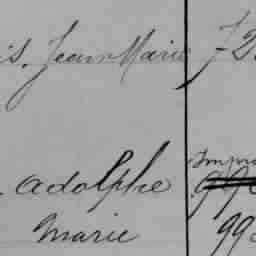 is, Jean Marie 72
Adolphe
Marie 99